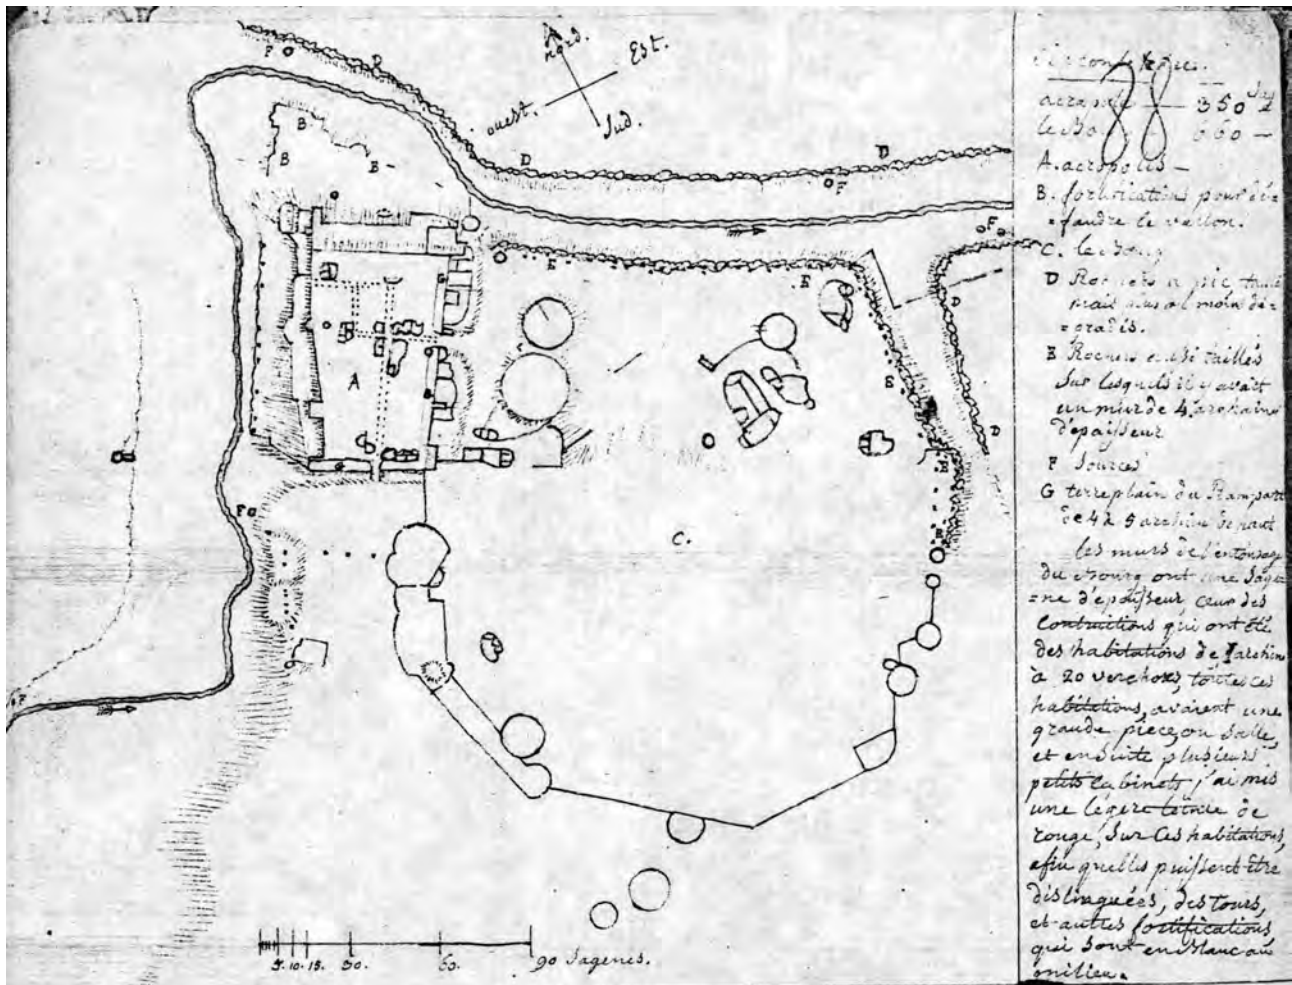 nord.
Est.
ouest.
Sud.
F
D
D
D
B.
B
B
F
F
E
E
E
D
D
G
A
C.
F
F
5. 10. 15. 30. 60. 90 Sagenes.
acropole — 350 Sag
le Bou 660 —
A. acropolis —
B. fortifications pour dé=
=fandre le vallon.
C. le Bourg
D Rochers a pic taillé
mais plus ol moin dé=
=gradés.
E Rochers aussi taillés
sur lesquels il y avait
un mur de 4 archins
d'epaisseur
F Sources
G terreplain du Rampart
de 4 à 5 archin de haut
les murs de l'entourage
du Bourg ont une Sage=
=ne d'epaisseur, ceux des
Contruitions qui ont été
des habitations de 1 archin
à 20 verchoxs, toutes ces
habitations, avaient une
grande piece, ou Salle,
et ensuite plusieurs
petits Cabinets, j'ai mis
une légere teinte de
rouge, Sur Ces habitations,
afin quelles puissent être
distinguées, des tours,
et autres fortifications
qui sont en blanc au
milieu.